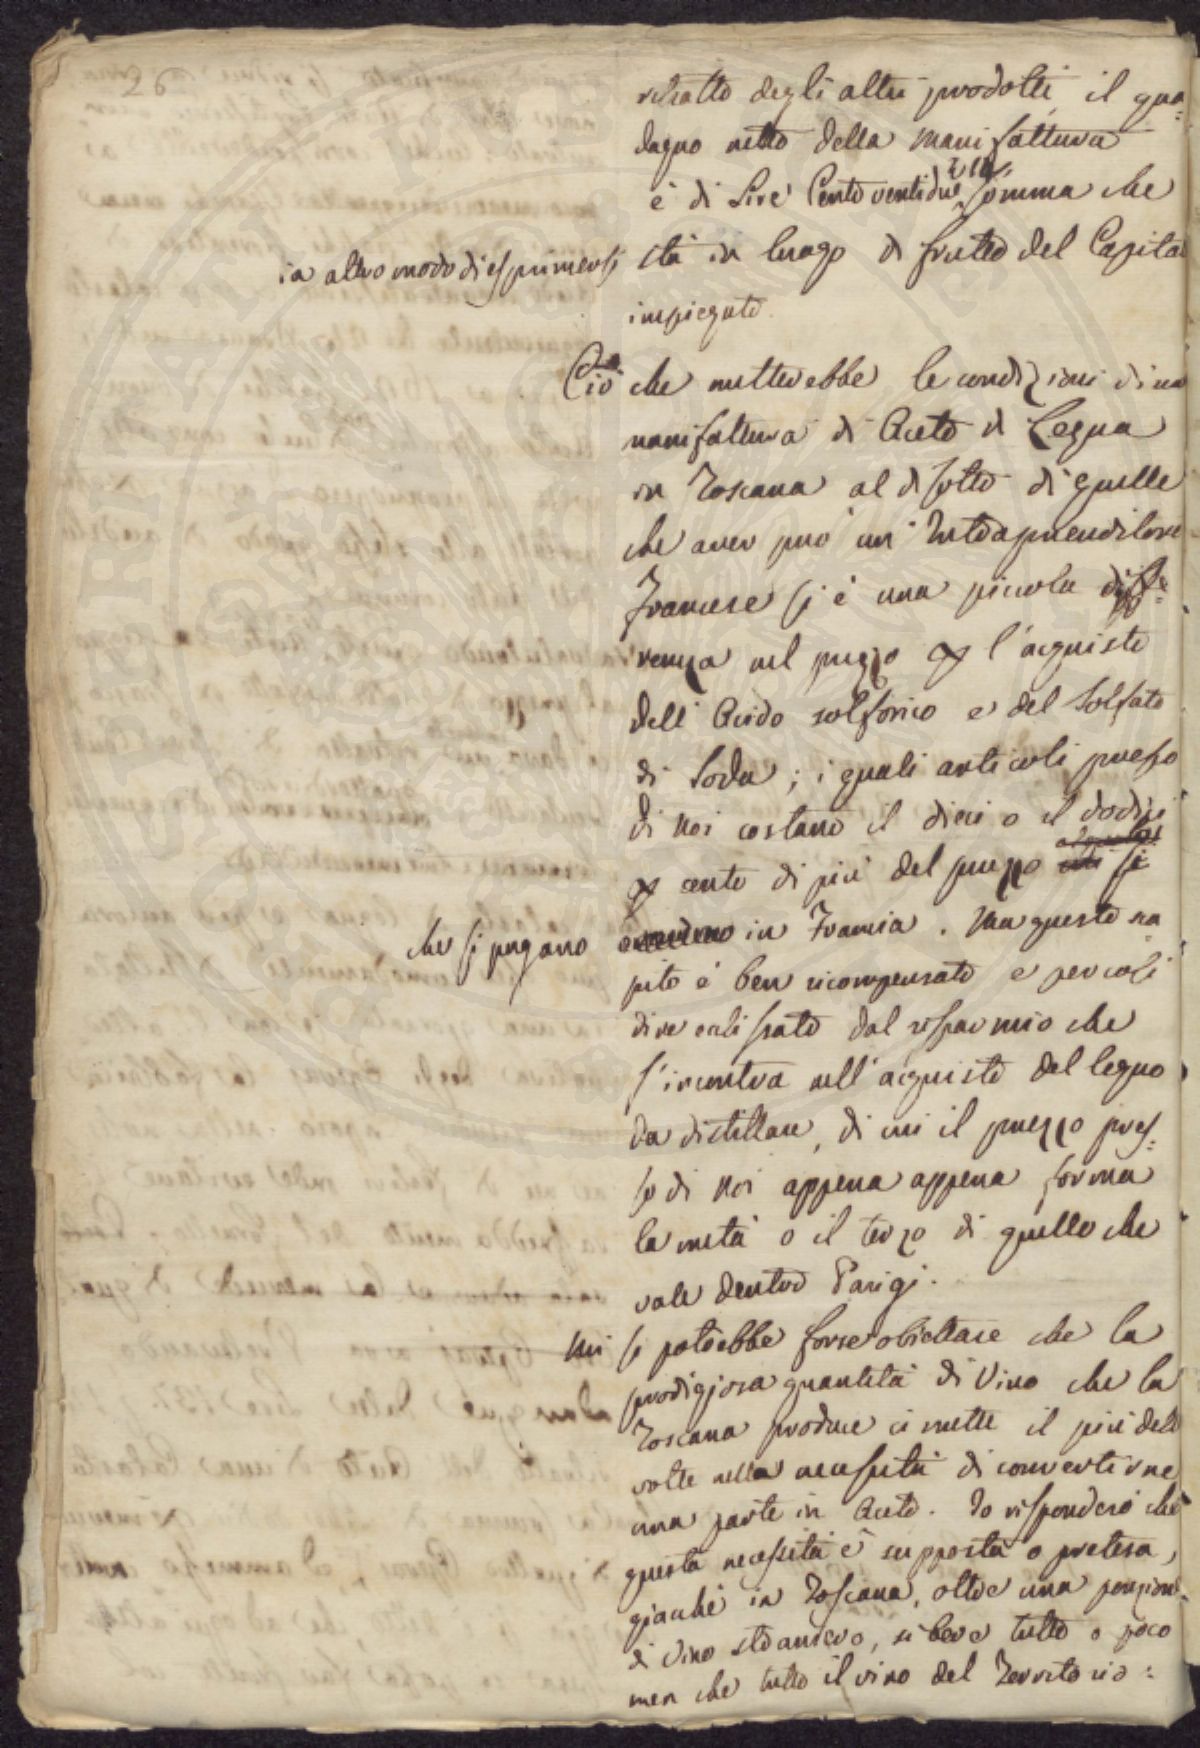 26
ritratto degli altri prodotti, il gua=
dagno netto della manifattura
è di Lire Cento ventidue, somma che
in altro modo di esprimersi
stà in luogo di frutto del Capital
impiegato.
Ciò che metterebbe le condizioni di una
manifattura di Aceto di Legna
in Toscana al di sotto di quelle
che aver può un' Intraprenditore
Francese si è una piccola diffe=
renza nel prezzo per l'acquisto
dell' Acido solforico e del Solfato
di Soda; i quali articoli presso
di noi costano il dieci o il dodici
per cento di più del prezzo si
che si pagano
in Francia. Ma questo ca
pito è ben ricompensato e per così
dire eclissato dal risparmio che
s'incontra nell' acquisto del legno
da distillare, di cui il prezzo pres=
so di noi appena appena forma
la metà o il terzo di quello che
vale dentro Parigi.
Mi si potrebbe forse obiettare che la
prodigiosa quantità di Vino che la
Toscana produce ci mette il più delle
volte nella necessità di convertirne
una parte in Aceto. Io risponderò che
questa necessità è supposta o pretesa,
giacchè in Toscana, oltre una porzione
di Vino straniero, si beve tutto o poco
men che tutto il vino del Territorio: